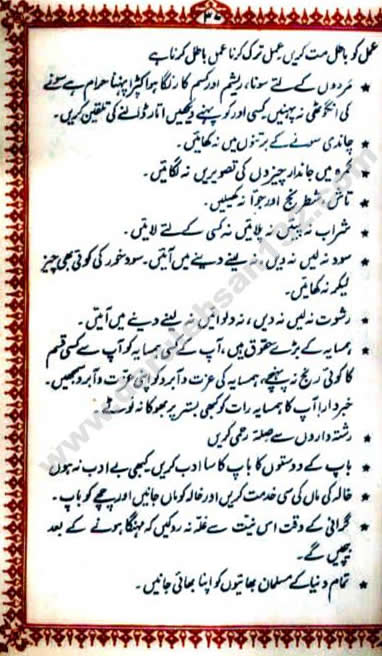 ۳۷
عمل کو باطل مت کریں عمل ترک کرنا عمل باطل کرنا ہے
★ مردوں کے لئے سونا، ریشم اور کسم کا رنگا ہوا کپڑا پہننا حرام ہے سونے
کی انگوٹھی نہ پہنیں کسی اور کو پہنے دیکھیں اتار ڈالنے کی تلقین کریں۔
★ چاندی سونے کے برتنوں میں نہ کھائیں۔
★ کمرہ میں جاندار چیزوں کی تصویریں نہ لگائیں۔
★ تاش، شطرنج اور جوّا نہ کھیلیں۔
★ شراب نہ پیئیں نہ پلائیں نہ کسی کے لئے لائیں۔
★ سود نہ لیں نہ دیں، نہ لینے دینے میں آئیں۔ سود خور کی کوئی بھی چیز
لیکر نہ کھائیں۔
★ رشوت نہ لیں نہ دیں، نہ دلوائیں نہ لینے دینے میں آئیں۔
★ ہمسایہ کے بڑے حقوق ہیں، آپ کے کسی ہمسایہ کو آپ سے کسی قسم
کا کوئی رنج نہ پہنچے، ہمسایہ کی عزت و آبرو کو اپنی عزت و آبرو سمجھیں۔
خبردار! آپ کا ہمسایہ رات کو کبھی بستر پر بھوکا نہ لوٹے
★ رشتہ داروں سے صلہ رحمی کریں
★ باپ کے دوستوں کا باپ کا سا ادب کریں کبھی بے ادب نہ ہوں
★ خالہ کی ماں کی سی خدمت کریں اور خالہ کو ماں جانیں اور چچے کو باپ۔
★ گرانی کے وقت اس نیت سے غلّہ نہ روکیں کہ مہنگا ہونے کے بعد
بیچیں گے۔
★ تمام دنیا کے مسلمان بھائیوں کو اپنا بھائی جانیں۔